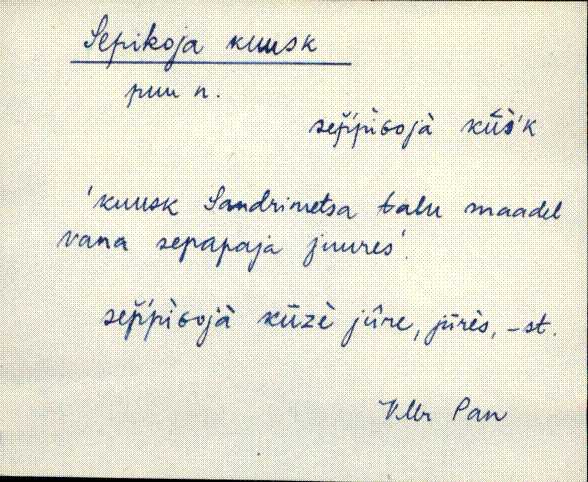 Sepikoja kuusk
puu n.
sep̌'p̀iɢojà kū̬s̀'k
'kuusk Sandrimetsa talu maadel
vana sepapaja juures'.
sep̌'p̀iɢojà kūzè jûre, jūrès, -st.
VMr Pan